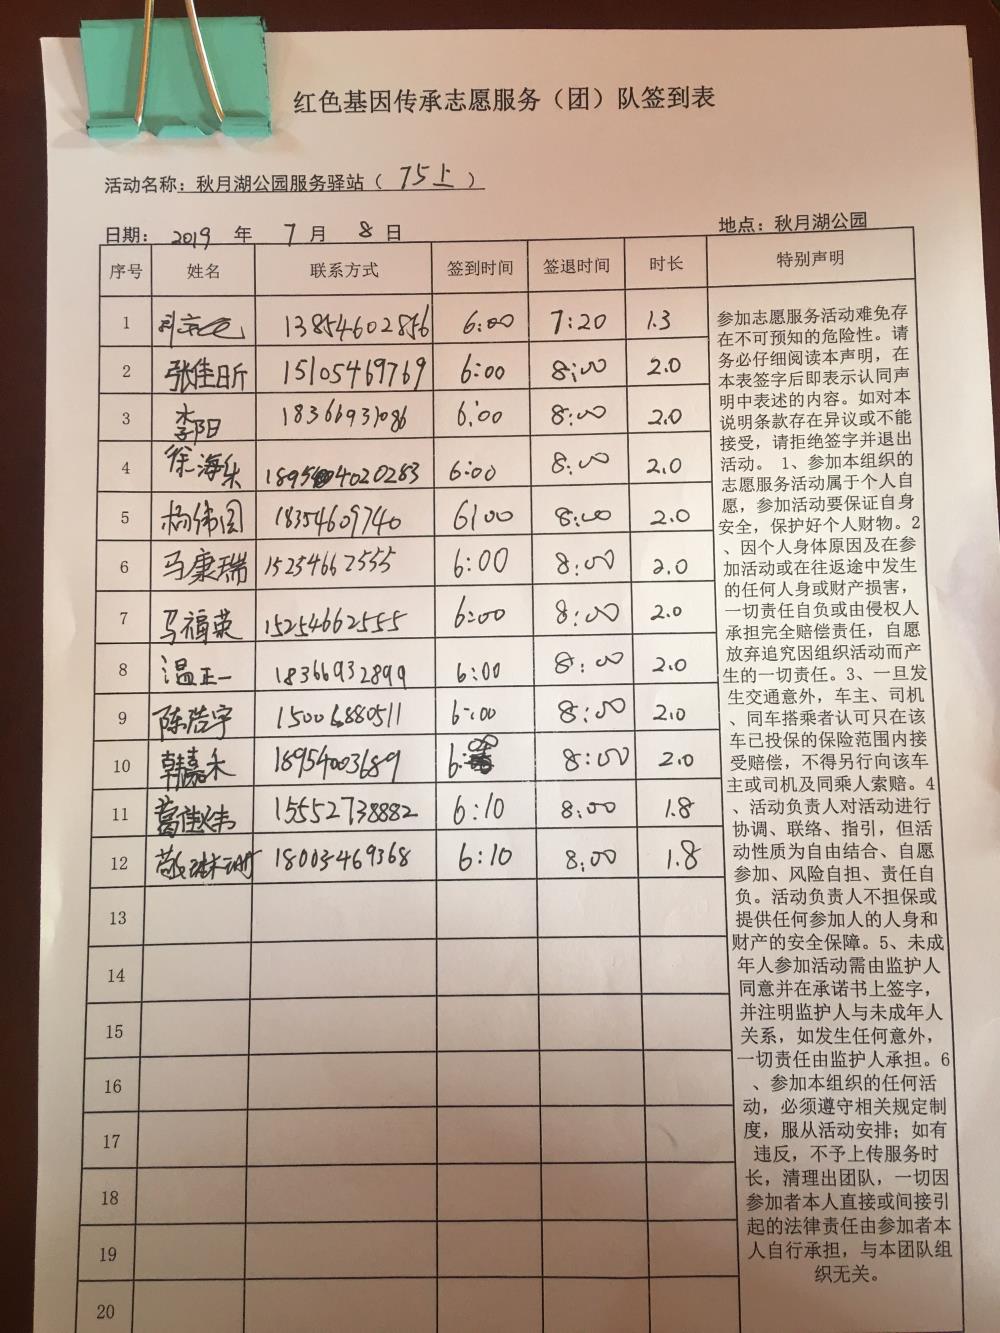 红色基因传承志愿服务（团）队签到表
活动名称：秋月湖公园服务驿站（ 75上 ）
日期： 2019 年 7 月 8 日
地点：秋月湖公园
序号 姓名 联系方式 签到时间 签退时间 时长 特别声明
1 13854602856 6:00 7:20 1.3
2 张佳昕 15105469769 6:00 8:00 2.0
3 李阳 18366937086 6:00 8:00 2.0
4 徐海 6:00 8:00 2.0
5 杨伟国 18354609740 6:00 8:00 2.0
6 马康瑞 15254662555 6:00 8:00 2.0
7 马福荣 15254662555 6:00 8:00 2.0
8 温正一 18366932899 6:00 8:00 2.0
9 陈浩宇 15006880511 6:00 8:00 2.0
10 韩嘉禾 18954003689 6:00 8:00 2.0
11 葛佳炜 15552738882 6:10 8:00 1.8
12 18003469368 6:10 8:00 1.8
13
14
15
16
17
18
19
20
参加志愿服务活动难免存
在不可预知的危险性。请
务必仔细阅读本声明，在
本表签字后即表示认同声
明中表述的内容。如对本
说明条款存在异议或不能
接受，请拒绝签字并退出
活动。 1、参加本组织的
志愿服务活动属于个人自
愿，参加活动要保证自身
安全，保护好个人财物。2
、因个人身体原因及在参
加活动或在往返途中发生
的任何人身或财产损害，
一切责任自负或由侵权人
承担完全赔偿责任，自愿
放弃追究因组织活动而产
生的一切责任。3、一旦发
生交通意外，车主、司机
、同车搭乘者认可只在该
车已投保的保险范围内接
受赔偿，不得另行向该车
主或司机及同乘人索赔。4
、活动负责人对活动进行
协调、联络、指引，但活
动性质为自由结合、自愿
参加、风险自担、责任自
负。活动负责人不担保或
提供任何参加人的人身和
财产的安全保障。5、未成
年人参加活动需由监护人
同意并在承诺书上签字，
并注明监护人与未成年人
关系，如发生任何意外，
一切责任由监护人承担。6
、参加本组织的任何活
动，必须遵守相关规定制
度，服从活动安排；如有
违反，不予上传服务时
长，清理出团队，一切因
参加者本人直接或间接引
起的法律责任由参加者本
人自行承担，与本团队组
织无关。